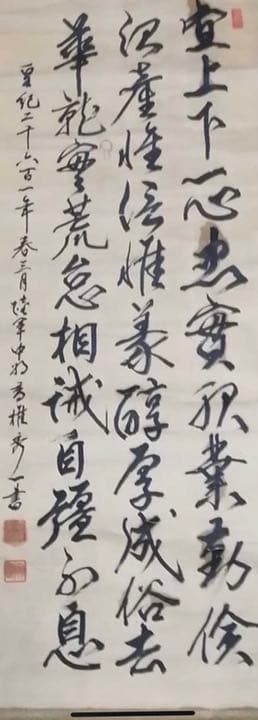 宜上下一心忠實服業勤儉
治產惟信惟義醇厚成俗去
華就實荒怠相誡自彊不息
皇紀二千六百一年春三月陸軍中将香椎秀一書